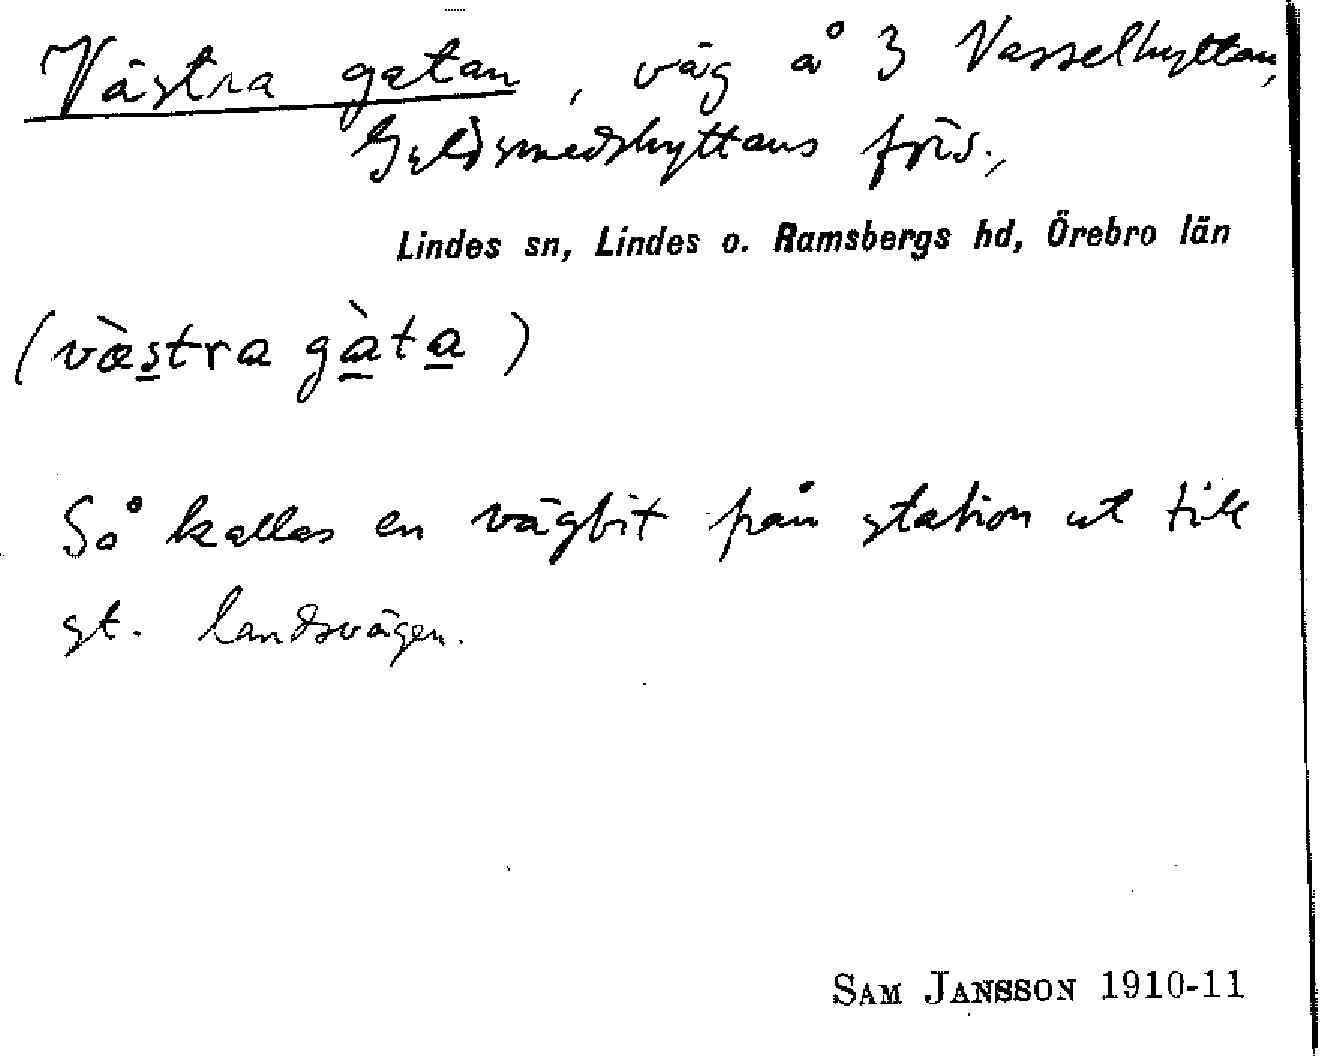 Västra gatan, väg å 3 Vasselhyttan,
Guldsmedshyttans förs.,
Lindes sn, Lindes o. Ramsbergs hd, Örebro län
(væ̀stra gàta)
Så kallas en vägbit från station ut till
gt. landsvägen.
SAM JANSSON 1910-11